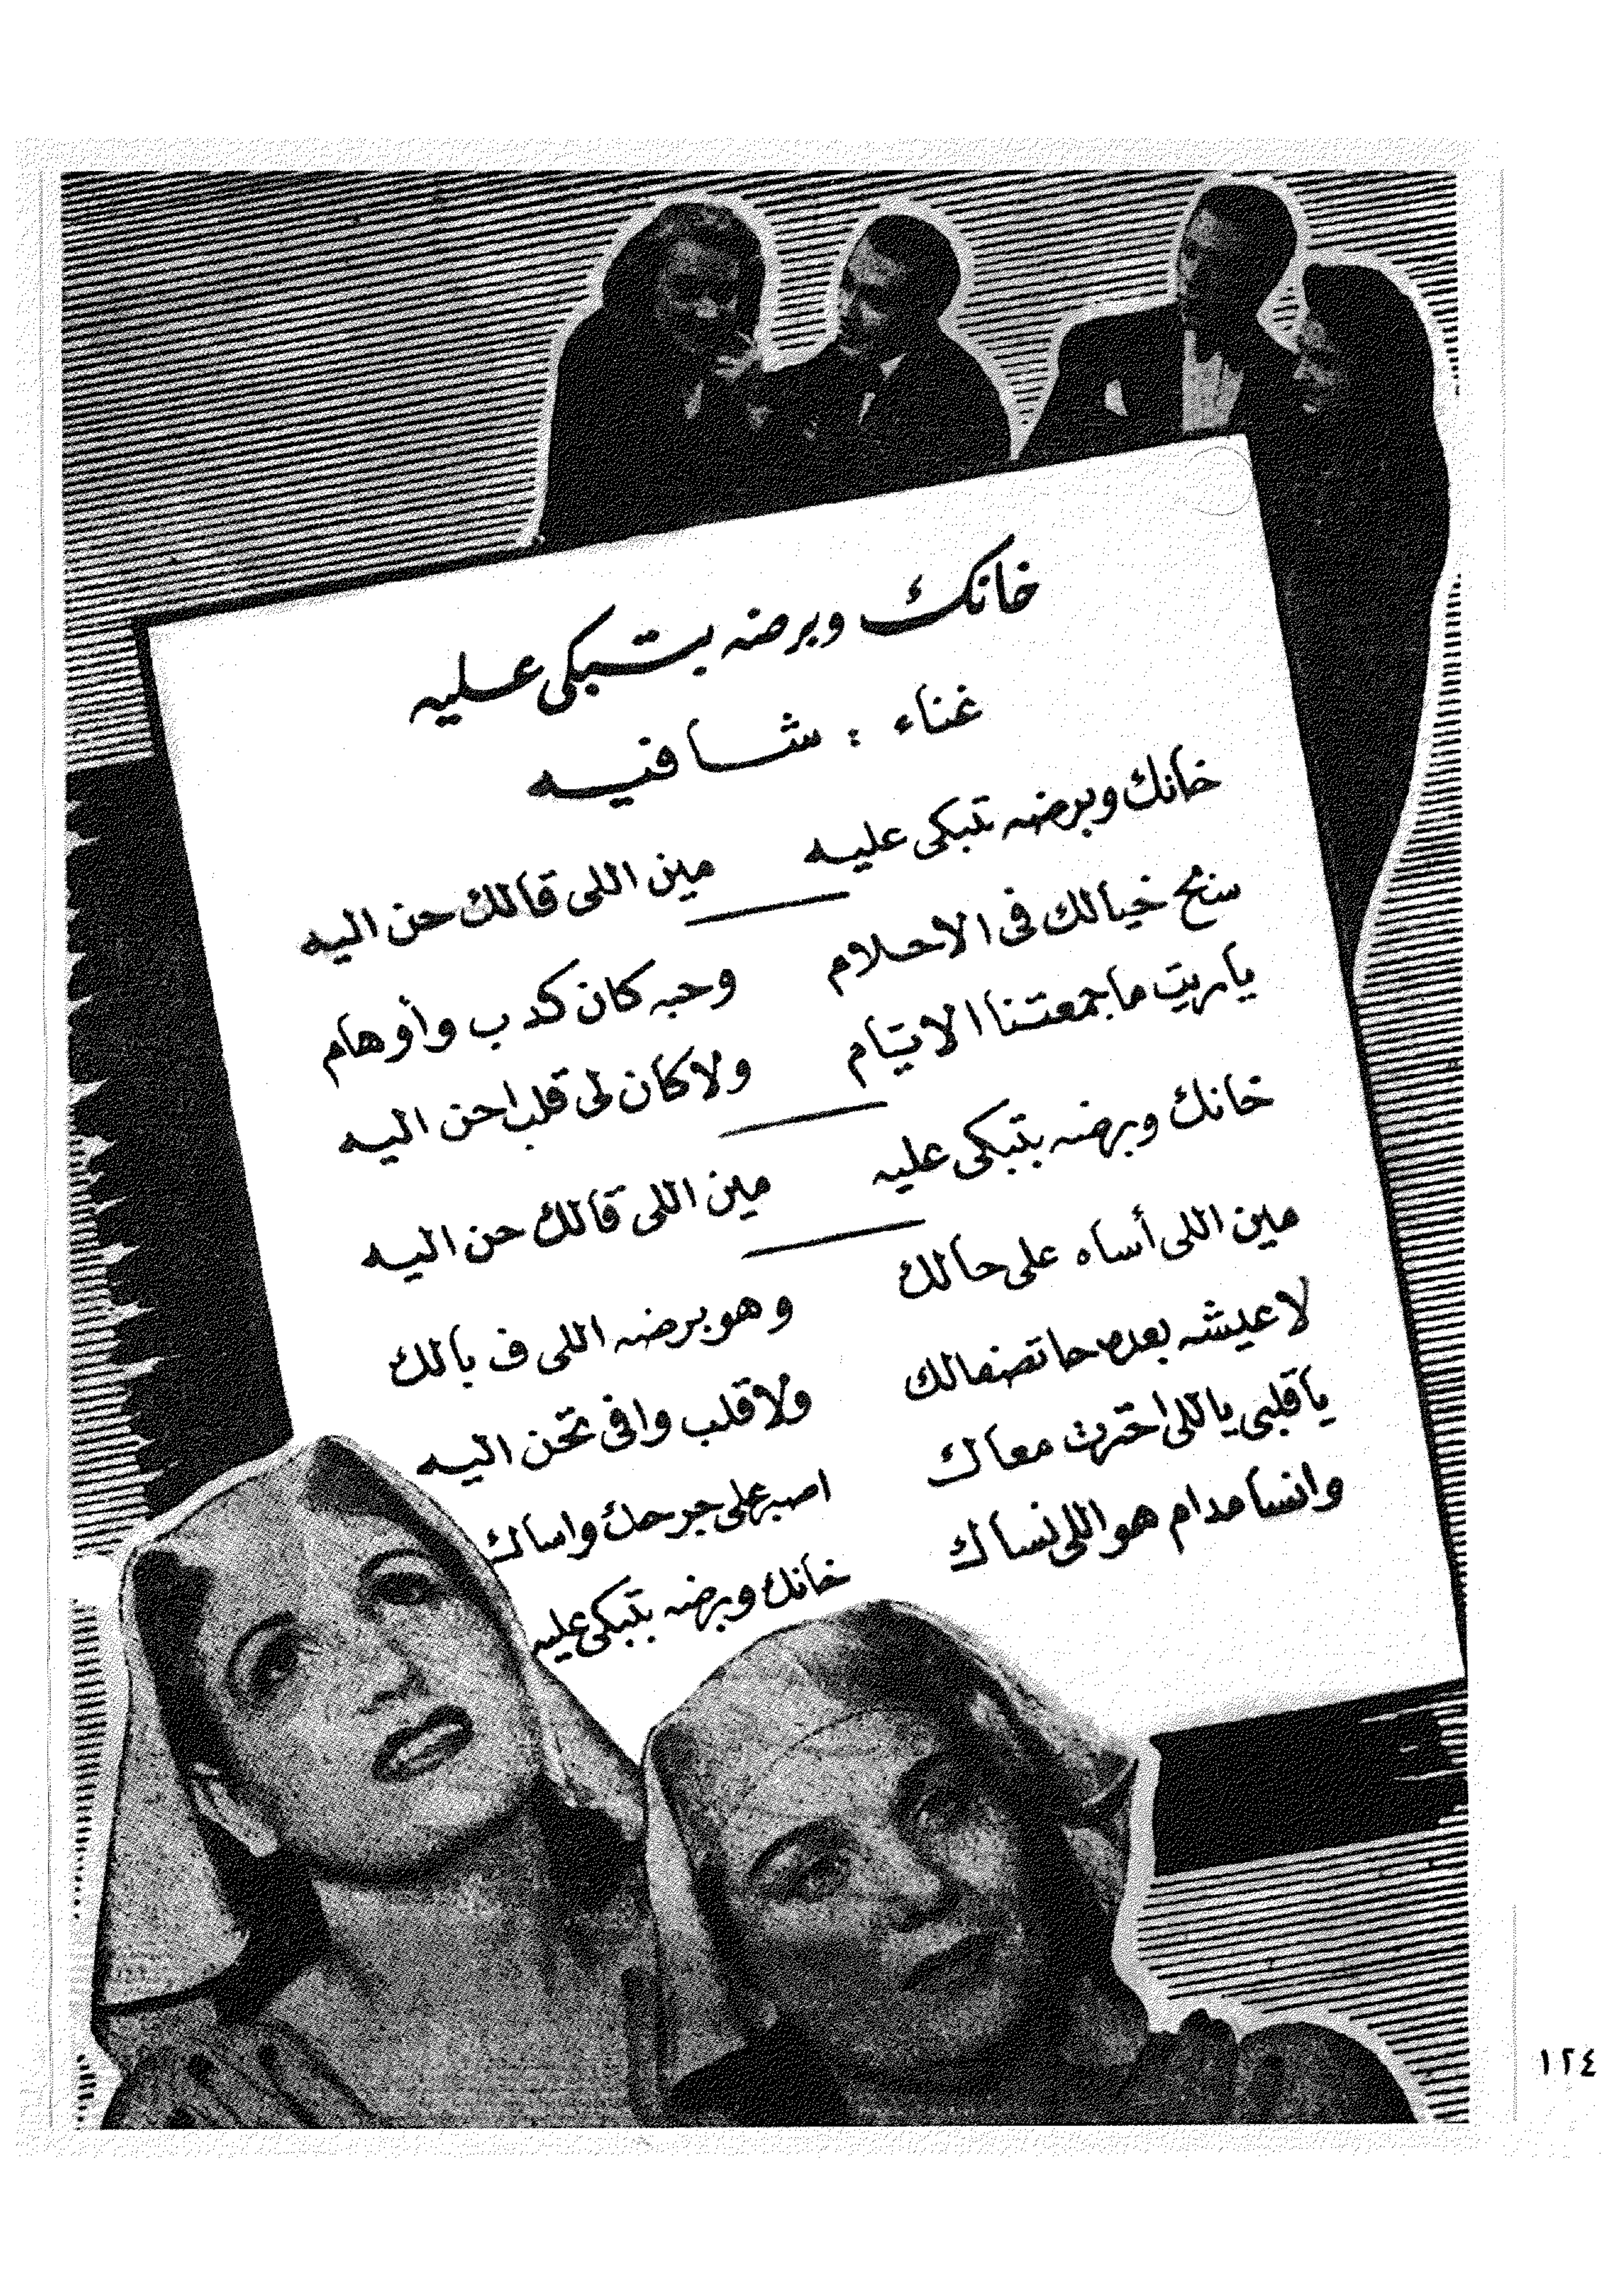 خانك وبرضه بتبكى عليه
غناء : شافيه
خانك وبرضه تبكى عليه مين اللى قالك حن اليه
سنح خيالك فى الاحلام وحبه كان كدب وأوهام
ياريت ماجمعتنا الايام ولاكان لى قلب احن اليه
خانك وبرضه بتبكى عليه مين اللى قالك حن اليه
مين اللى أساه على حالك وهو برضه اللى ف بالك
لاعيشه بعده حاتصفالك ولاقلب وافى تحن اليه
ياقلبى ياللى احترت معاك اصبر على جرحك واساك
وانسا مدام هو اللى نساك خانك وبرضه بتبكى عليه
١٢٤